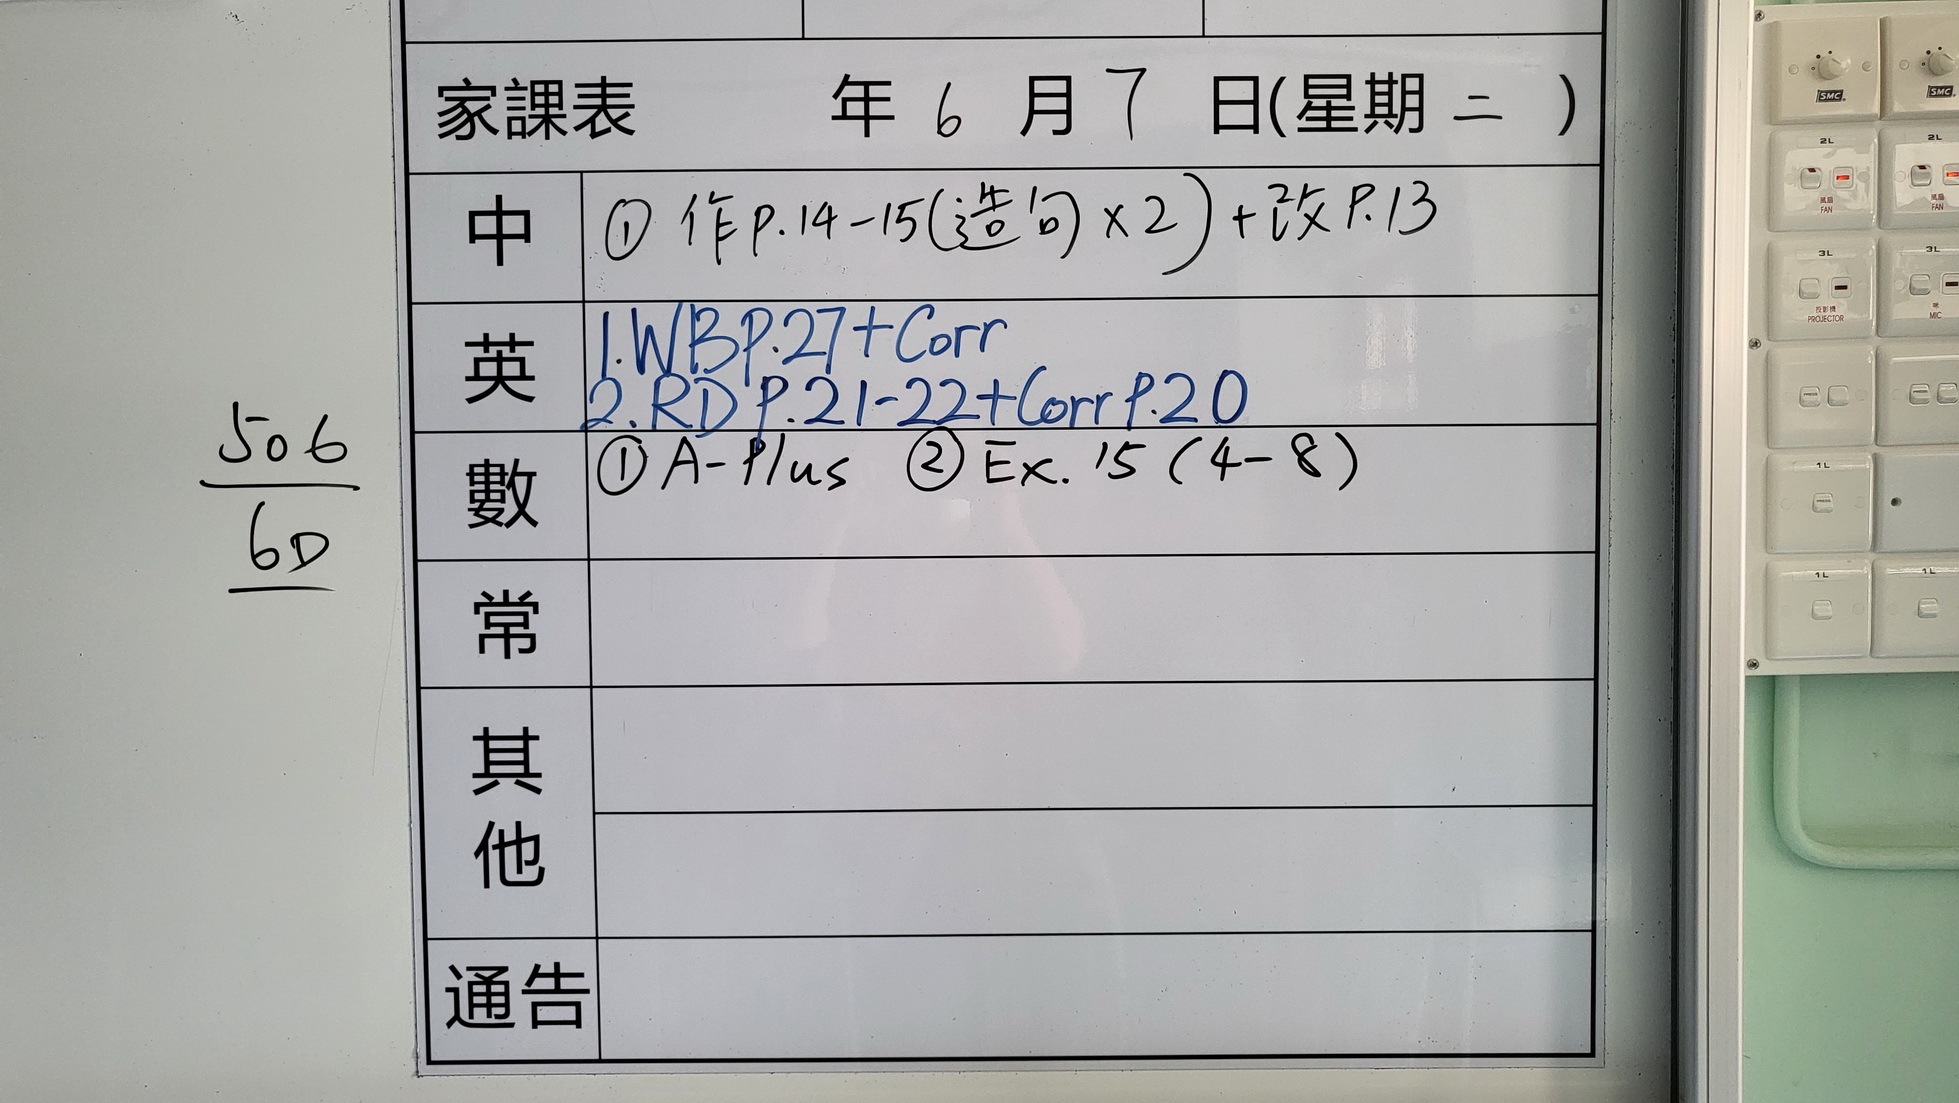 家課表 年 6 月 7 日(星期 二 )
中 ① 作 P.14-15(造句×2)+改 P.13
英 1.WB P.27+Corr
2.RD P.21-22+Corr P.20
數 ① A-Plus ② Ex. 15 (4-8)
常
其他
通告
506
6D
SMC
SMC
2L
2L
風扇
FAN
風扇
FAN
3L
3L
投影機
PROJECTOR
咪
MIC
1L
PRESS
1L
1L